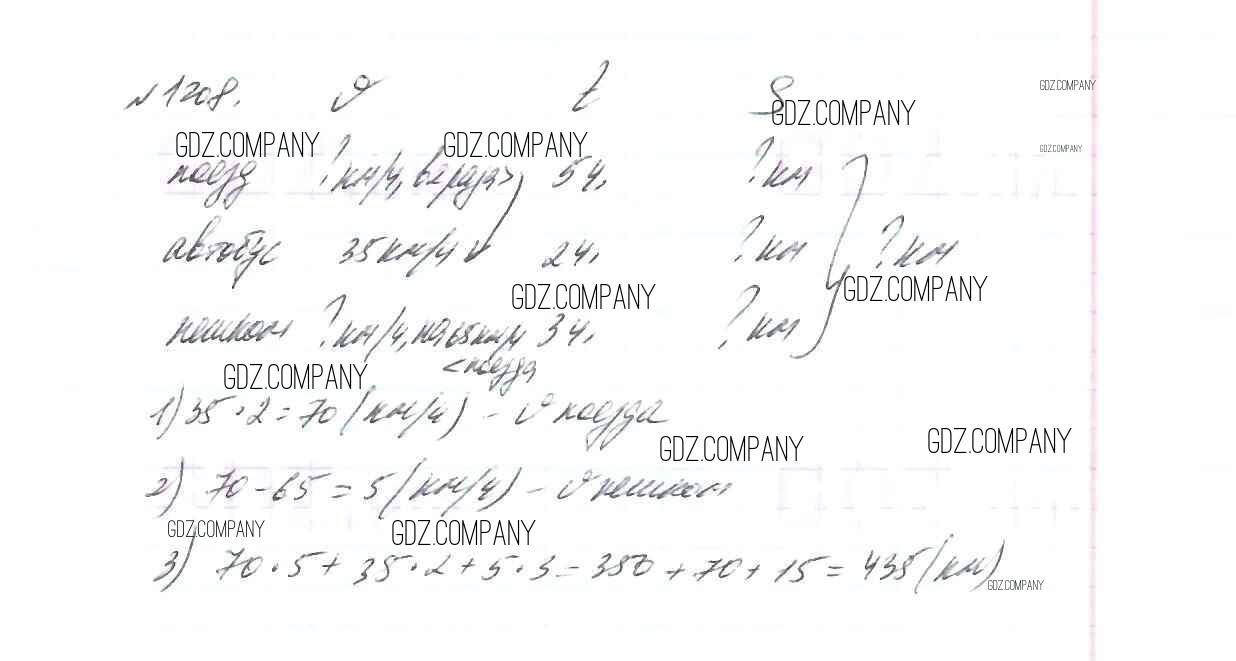 №1208. v t S
GDZ.COMPANY
GDZ.COMPANY
GDZ.COMPANY
GDZ.COMPANY GDZ.COMPANY
поезд ? км/ч, в 2 раза > 5 ч. ? км
автобус 35 км/ч 2 ч. ? км ? км
GDZ.COMPANY GDZ.COMPANY
пешком ? км/ч, на 65 км/ч 3 ч. ? км
< поезда
GDZ.COMPANY
1) 35 · 2 = 70 (км/ч) – v поезда
GDZ.COMPANY GDZ.COMPANY
2) 70 – 65 = 5 (км/ч) – v пешком
GDZ.COMPANY GDZ.COMPANY
3) 70 · 5 + 35 · 2 + 5 · 3 = 350 + 70 + 15 = 435 (км)
GDZ.COMPANY